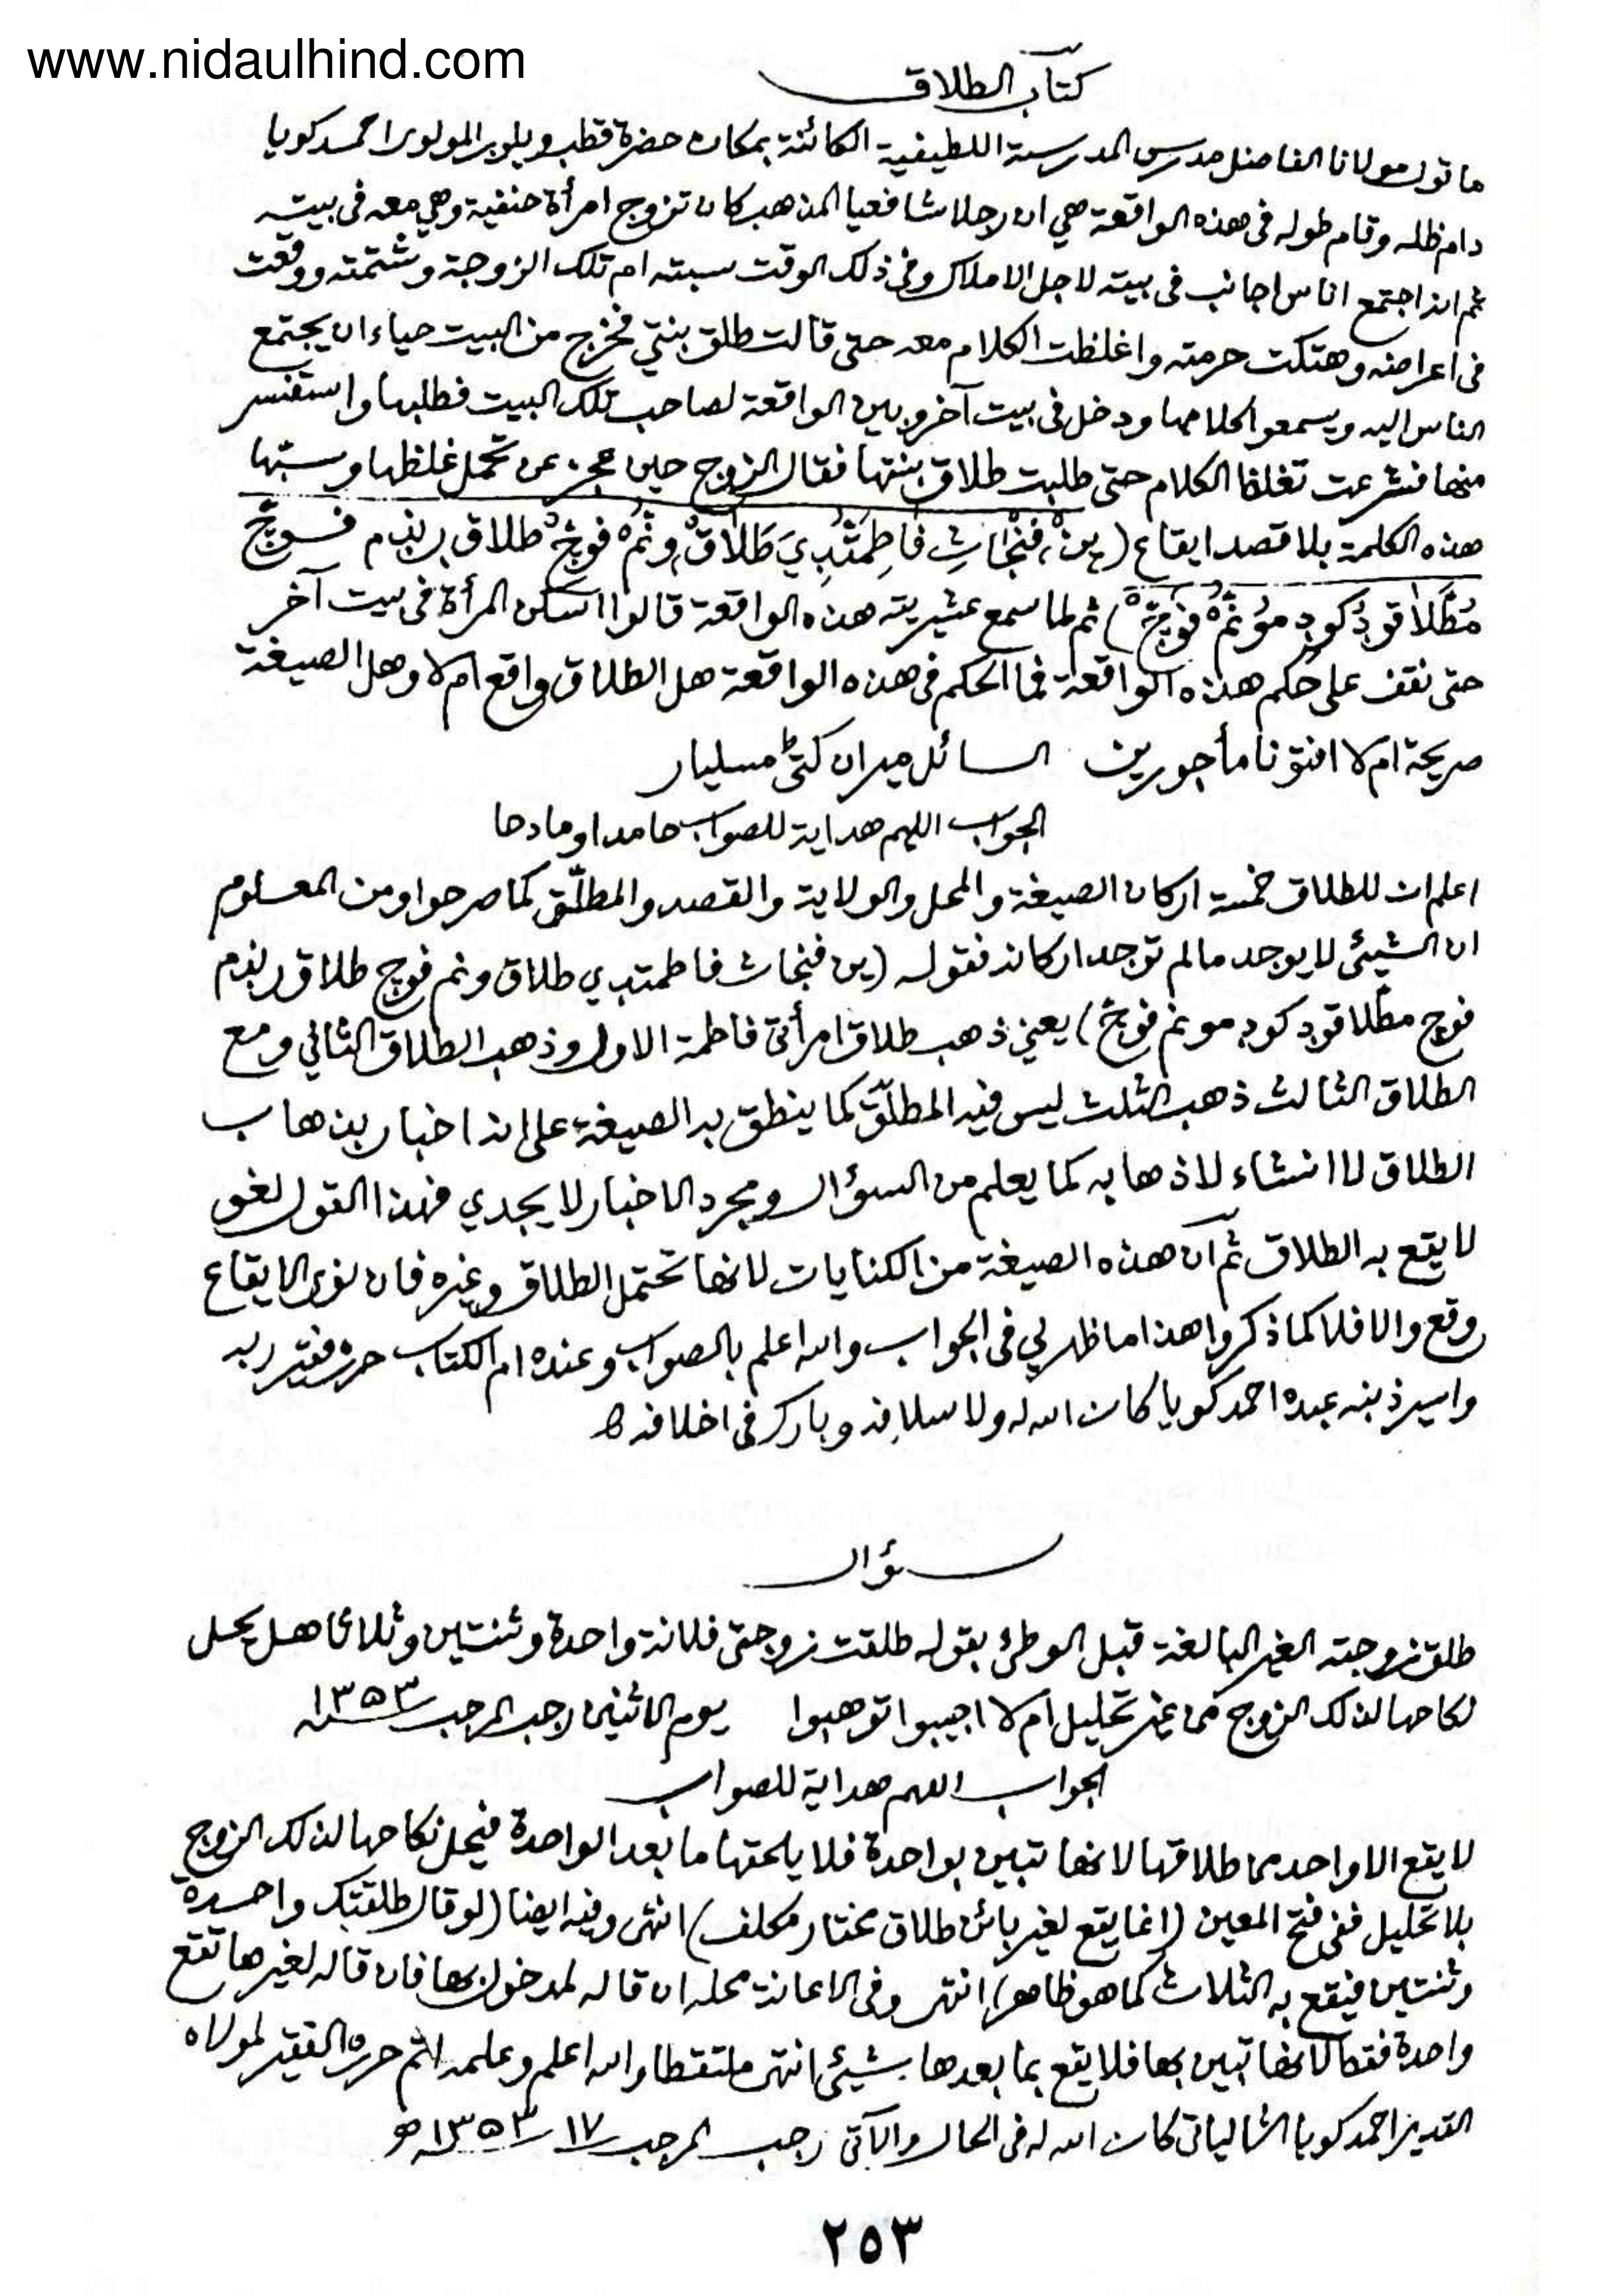 www.nidaulhind.com
كتاب الطلاق
ما قول مولانا الفاضل مدرس المدرسة اللطيفية الكائنة بمكان حضرة قطب ويلور المولوي احمد كويا
دام ظله وقام طوله في هذه الواقعة هي ان رجلا شافعيا المذهب كان تزوج امرأة حنفية وهي معه في بيته
ثم انه اجتمع اناس اجانب في بيته لاجل الاملاك وفي ذلك الوقت سبته ام تلك الزوجة وشتمته ووقعت
في اعراضه وهتكت حرمته واغلظت الكلام معه حتى قالت طلق بنتي فخرج من البيت حياء ان يجتمع
الناس اليه ويسمعوا كلامها ودخل في بيت آخر وبين الواقعة لصاحب تلك البيت فطلبها واستفسر
منها فشرعت تغلظ الكلام حتى طلبت طلاق بنتها فقال الزوج حين عجز عن تحمل غلظها وسبتها
هذه الكلمة بلا قصد ايقاع (ين فنجاث فاطمتبدي طلاق ونم فوچ طلاق رنذم فوچ
مطلاقود كود مونم فوچ) ثم لما سمع عشيرته هذه الواقعة قالوا اسكن المرأة في بيت آخر
حتى نقف على حكم هذه الواقعة فما الحكم في هذه الواقعة هل الطلاق واقع ام لا وهل الصيغة
صريحة ام لا افتونا مأجورين السائل ميران كتي مسليار
الجواب اللهم هداية للصواب حامدا ومادحا
اعلم ان للطلاق خمسة اركان الصيغة والمحل والولاية والقصد والمطلّق كما صرحوا ومن المعلوم
ان الشيئ لا يوجد مالم توجد اركانه فقوله (ين فنجاث فاطمتبدي طلاق ونم فوچ طلاق رنذم
فوچ مطلاقود كود مونم فوچ) يعني ذهب طلاق امرأتي فاطمة الاول وذهب الطلاق الثاني ومع
الطلاق الثالث ذهب الثلث ليس فيه المطلّق كما ينطق به الصيغة على انه اخبار بذهاب
الطلاق لا انشاء لاذهابه كما يعلم من السؤال ومجرد الاخبار لا يجدي فهذا القول لغو
لا يقع به الطلاق ثم ان هذه الصيغة من الكنايات لانها تحتمل الطلاق وغيره فان نوى الايقاع
وقع والا فلا كما ذكروا هذا ما ظهر لي في الجواب والله اعلم بالصواب وعنده ام الكتاب حرره فقير ربه
واسير ذنبه عبده احمد كويا كان الله له ولاسلافه وبارك في اخلافه
سؤال
طلق زوجته الغير البالغة قبل الوطئ بقوله طلقت زوجتي فلانة واحدة وثنتين وثلاثا هل يحل
نكاحها لذلك الزوج من غير تحليل ام لا اجيبوا توهبوا يوم الاثنين رجب المرجب ١٣٥٣
الجواب اللهم هداية للصواب
لا يقع الا واحد من طلاقها لانها تبين بواحدة فلا يلحقها ما بعد الواحدة فيحل نكاحها لذلك الزوج
بلا تحليل ففي فتح المعين (انما يقع لغير بائن طلاق مختار مكلف) انتهى وفيه ايضا (لو قال طلقتك واحدة
وثنتين فيقع به الثلاث كما هو ظاهر) انتهى وفي الاعانة محله ان قاله لمدخول بها فان قاله لغيرها تقع
واحدة فقط لانها تبين بها فلا يقع بما بعدها شيئ انتهى ملتقطا والله اعلم وعلمه اتم حرره الفقير لمولاه
القدير احمد كويا الشالياتي كان الله له في الحال والآتي رجب المرجب ١٧ ١٣٥٣ ه
٢٥٣